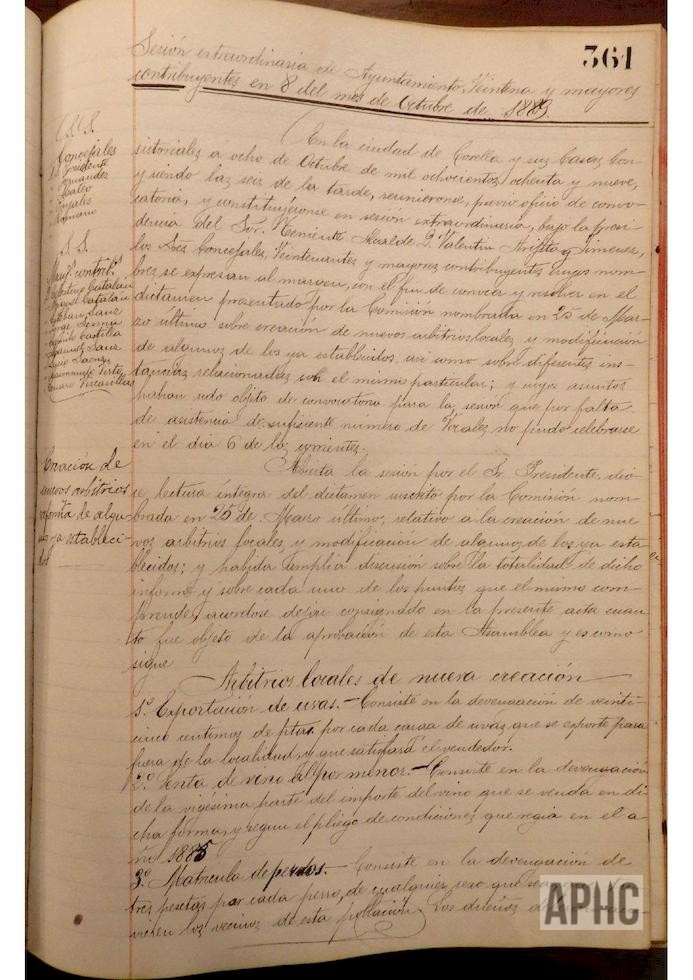 361
Sesión extraordinaria de Ayuntamiento, Veintena y mayores
contribuyentes en 8 del mes de Octubre de 1889.
S.S.
Concejales
Presidente
Fernandez
Mateo
Gonzalez
Romano
S.S.
contribs
Catalán
Miguel Catalán
Esteban Sanz
Jorge
Castilla
Manuel Sanz
Lucio Saenz
Virto
Virasillas
En la ciudad de Corella y sus Casas Con-
sistoriales á ocho de Octubre de mil ochocientos ochenta y nueve,
y siendo las seis de la tarde, reunieronse, previo oficio de convo-
catoria, y constituyéronse en sesión extraordinaria, bajo la presi-
dencia del Sor. Teniente Alcalde D. Valentin Jimenez,
los Sres Concejales, Veintenantes y mayores contribuyentes cuyos nom-
bres se expresan al margen, con el fin de conocer y resolver en el
dictamen presentado por la Comisión nombrada en 25 de Mar-
zo último sobre creación de nuevos arbitrios locales y modificación
de algunos de los ya establecidos, así como sobre diferentes ins-
tancias relacionadas con el mismo particular; y cuyos asuntos
habian sido objeto de convocatoria para la sesión que por falta
de asistencia de suficiente número de Vocales no pudo celebrarse
en el dia 6 de los corrientes.
Creación de
nuevos arbitrios
reforma de algu-
nos ya estableci-
dos
Abierta la sesión por el Sr. Presidente, dio-
se lectura íntegra del dictamen suscrito por la Comisión nom-
brada en 25 de Marzo último, relativo a la creación de nue-
vos arbitrios locales y modificación de algunos de los ya esta-
blecidos; y habida amplia discusión sobre la totalidad de dicho
informe y sobre cada uno de los puntos que el mismo com-
prende, acordose dejar consignado en la presente acta cuan-
to fue objeto de la aprobación de esta Asamblea y es como
sigue
Arbitrios locales de nueva creación
1º. Exportación de uvas.— Consiste en la devengación de veinti-
cinco centimos de ptas. por cada carga de uvas que se exporte para
fuera de la localidad y que satisfará el vendedor.
2º. Venta de vino al por menor.— Consiste en la devengación
de la vigesima parte del importe del vino que se venda en di-
cha forma, y segun el pliego de condiciones que regia en el a-
ño 1885
3º. Matricula de perros.— Consiste en la devengación de
tres pesetas por cada perro, de cualquier sexo que sea
los vecinos de esta población. Los dueños
APHC